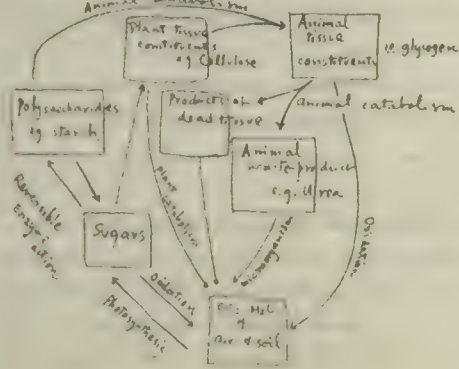 Animal anabolism
Plant tissue
constituents
eg Cellulose
Animal
tissue
constituents
ie glycogen
Polysaccharides
eg starch
Products of
dead tissue
animal catabolism
Animal
waste products
e.g. Urea
Reversible
Enzyme
action
Sugars
Plant catabolism
microorganism
Oxidation
Oxidation
Photosynthesis
CO2 H2O
of
air & soil